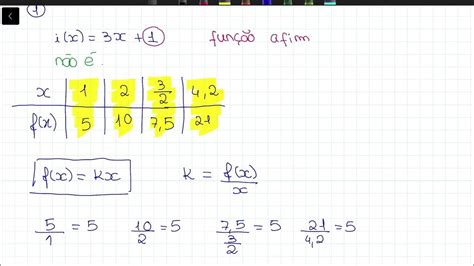 1
i(x) = 3x + 1 função afim
não é.
x | 1 | 2 | 3/2 | 4,2
f(x) | 5 | 10 | 7,5 | 21
f(x) = Kx K = f(x)/x
5/1 = 5 10/2 = 5 7,5/(3/2) = 5 21/4,2 = 5